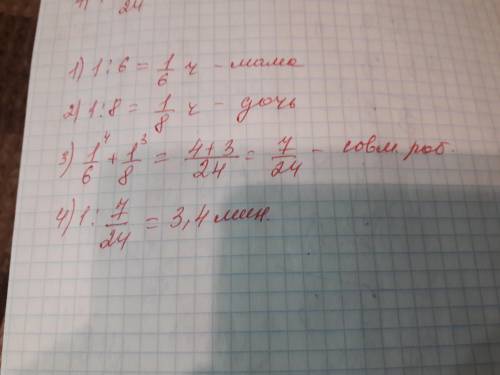 24
1) 1 : 6 = 1/6 ч - мама
2) 1 : 8 = 1/8 ч - дочь
3) 1/6 ⁴ + 1/8 ³ = 4+3/24 = 7/24 - совм. раб.
4) 1 : 7/24 = 3,4 мин.